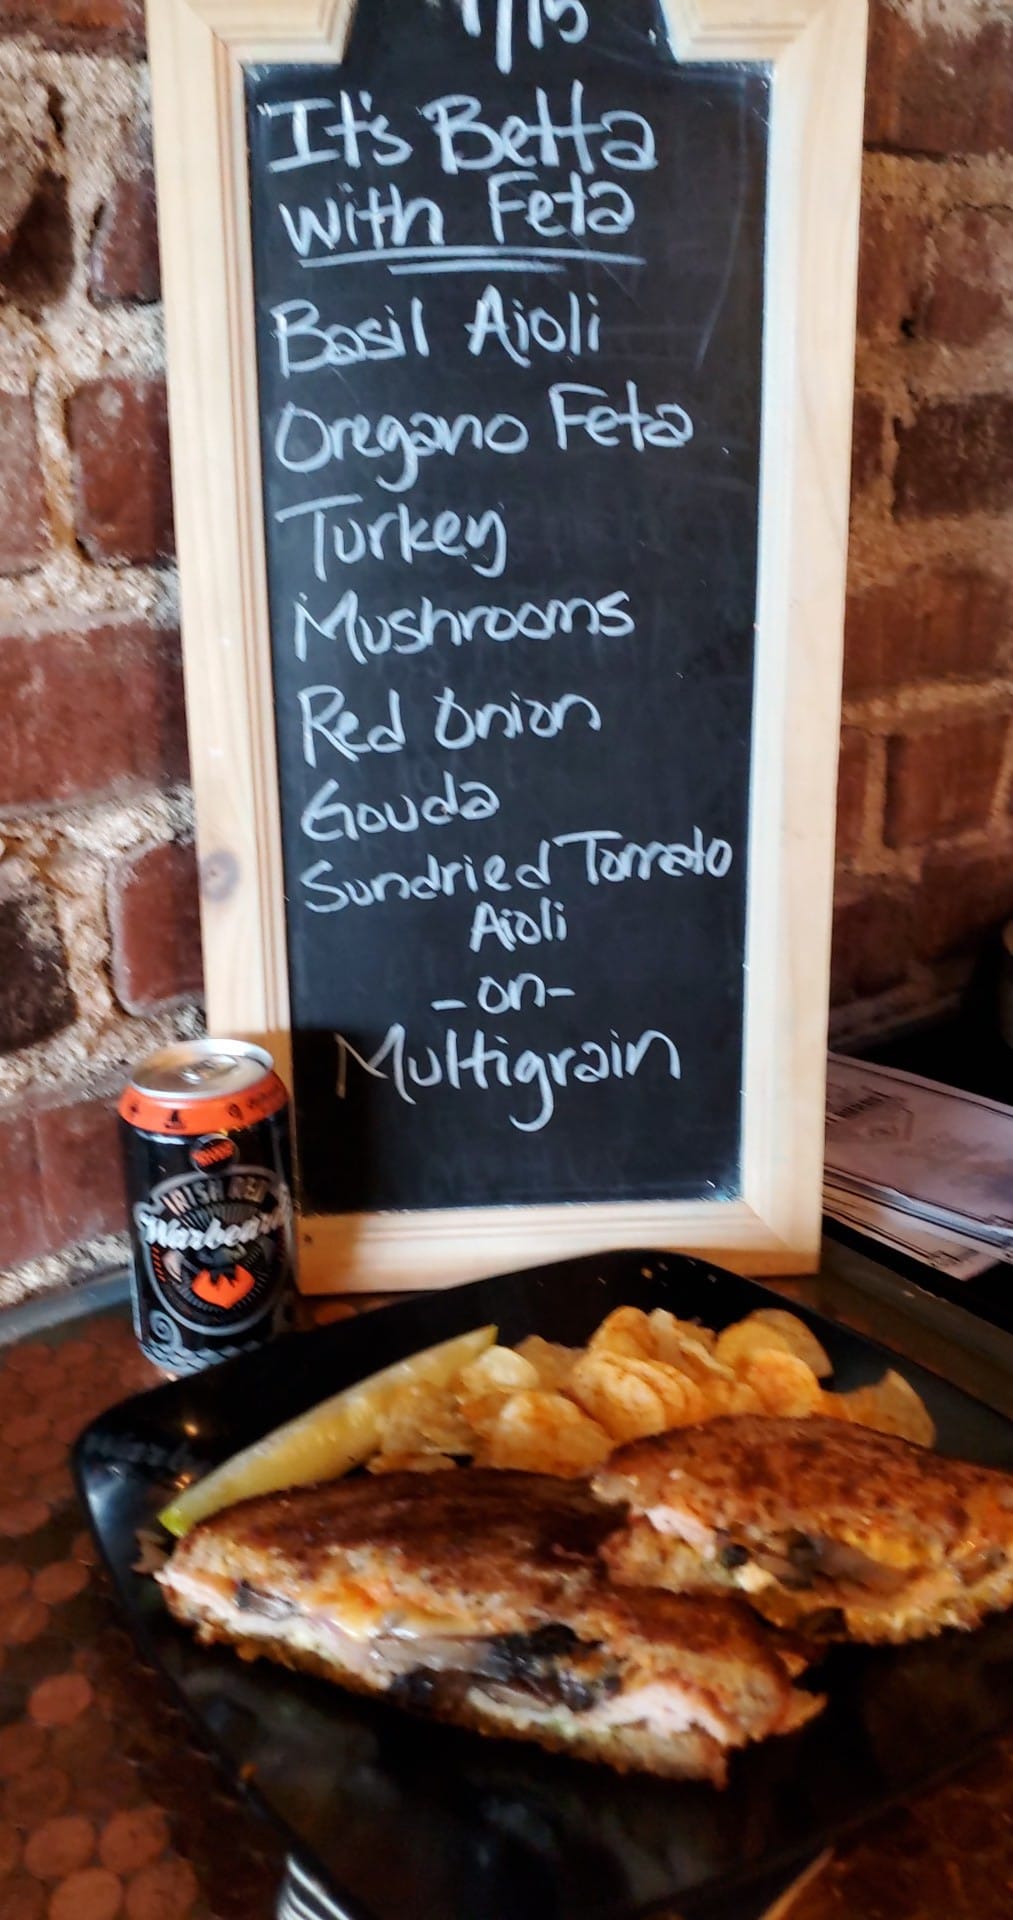 It's Betta
with Feta
Basil Aioli
Oregano Feta
Turkey
Mushrooms
Red Onion
Gouda
Sundried Tomato
Aioli
-on-
Multigrain
IRISH RED
Warbeard